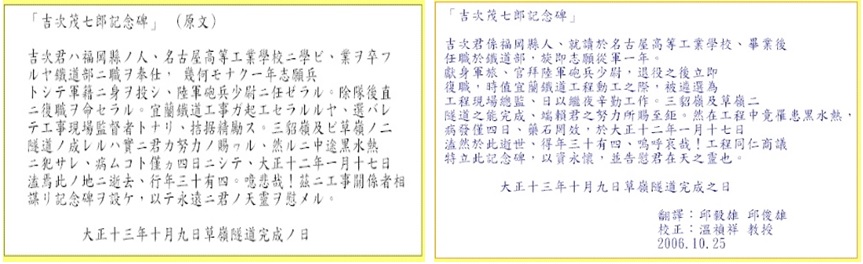 「吉次茂七郎記念碑」（原文）
吉次君ハ福岡縣ノ人、名古屋高等工業學校ニ學ビ、業ヲ卒フ
ルヤ鐵道部ニ職ヲ奉仕，幾何モナク一年志願兵
トシテ軍籍ニ身ヲ投シ、陸軍砲兵少尉ニ任ゼラル。除隊後直
ニ復職ヲ命セラル。宜蘭鐵道工事ガ起エセラルルヤ、選バレ
テ工事現場監督者トナリ、拮据精勤ス。三貂嶺及ビ草嶺ノ二
隧道ノ成レルハ實ニ君カ努力ノ賜ッル、然ルニ中途黑水熱
ニ犯サレ、病ムコト僅ヵ四日ニシテ、大正十二年一月十七日
溘焉此ノ地ニ逝去、行年三十有四。噫悲哉！茲ニ工事關係者相
謀リ記念碑ヲ設ケ，以テ永遠ニ君ノ天靈ヲ慰メル。
大正十三年十月九日草嶺隧道完成ノ日
「吉次茂七郎記念碑」
吉次君係福岡縣人、就讀於名古屋高等工業學校、畢業後
任職於鐵道部，旋即志願從軍一年。
獻身軍旅、官拜陸軍砲兵少尉，退役之後立即
復職，時值宜蘭鐵道工程動工之際，被遴選為
工程現場總監、日以繼夜辛勤工作。三貂嶺及草嶺二
隧道之能完成、端賴君之努力所賜至鉅。然在工程中竟罹患黑水熱，
病發僅四日、藥石罔效，於大正十二年一月十七日
溘然於此逝世、得年三十有四、嗚呼哀哉！工程同仁商議
特立此記念碑，以資永懷，並告慰君在天之靈也。
大正十三年十月九日草嶺隧道完成之日
翻譯：邱毅雄 邱俊雄
校正：溫禎祥 教授
2006.10.25